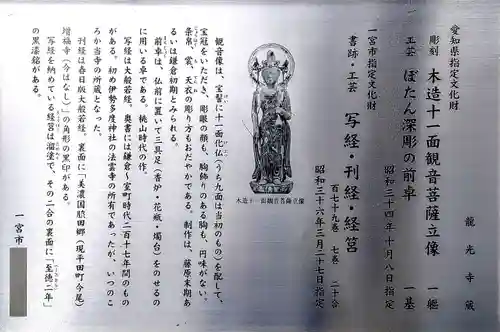 愛知県指定文化財
龍光寺蔵
彫刻 木造十一面観音菩薩立像 一軀
工芸 ぼたん深彫の前卓 一基
昭和三十四年十月八日指定
一宮市指定文化財
書跡・工芸 写経・刊経・経筥
百七十九巻 七巻 二十合
昭和三十六年三月二十七日指定
木造十一面観音菩薩立像
観音像は、宝髻に十一面化仏(うち九面は当初のもの)を配して、
宝冠をいただき、彫眼の顔も、胸飾りのある胸も、円味がない。
条帛、裳、天衣の彫り方もおだやかである。制作は、藤原末期あ
るいは鎌倉初期とみられる。
前卓は、仏前に置いて三具足(香炉・花瓶・燭台)をのせるの
に用いる卓である。桃山時代の作。
写経は大般若経、奥書には鎌倉〜室町時代二百十七年間のもの
がある。初め伊勢多度神社の法雲寺の所蔵であったが、いつのこ
ろか当寺の所蔵となった。
刊経は春日版大般若経、裏面に「美濃国脇田郷(現平田町今尾)
増福寺(今はなし)」の角形の黒印がある。
写経を納めている経筥は溜塗で、その二合の裏面に「至徳二年」
の黒漆銘がある。
一宮市